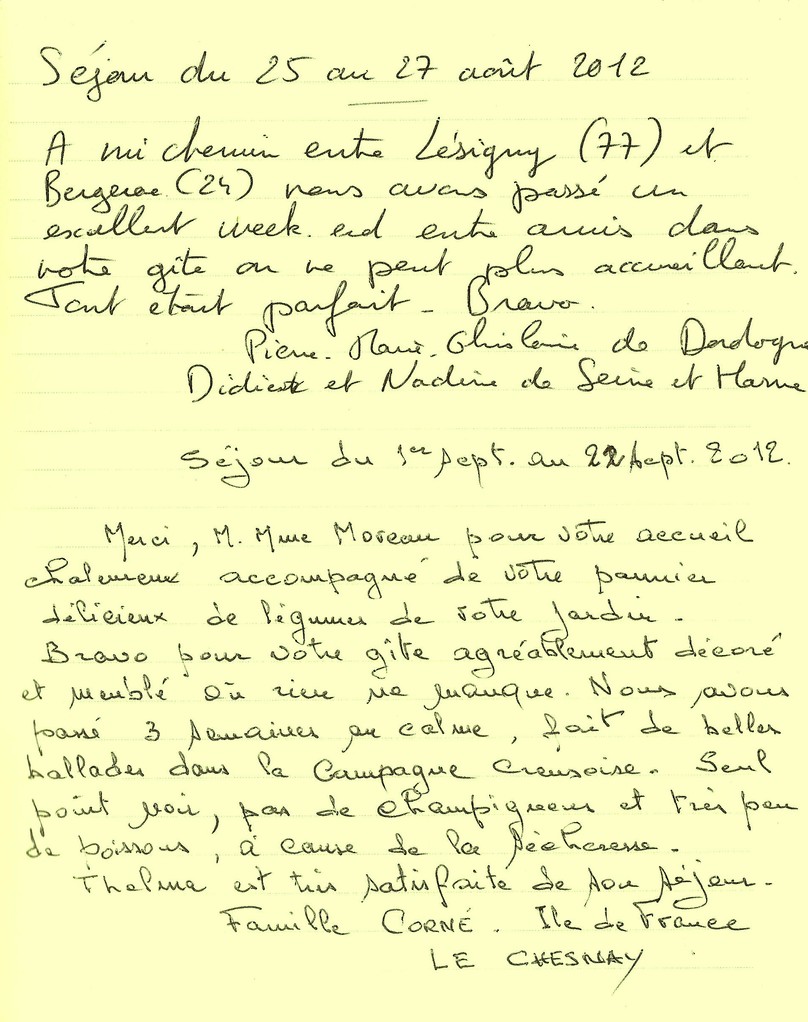 Séjour du 25 au 27 août 2012
A mi chemin entre Lésigny (77) et
Bergerac (24) nous avons passé un
excellent week-end entre amis dans
votre gîte on ne peut plus accueillant.
Tout était parfait - Bravo.
Pierre-Marie-Ghislaine de Dordogne
Didier et Nadine de Seine et Marne
Séjour du 1er Sept. au 22 Sept. 2012.
Merci, M. Mme Moreau pour votre accueil
chaleureux accompagné de votre pannier
délicieux de légumes de votre jardin.
Bravo pour votre gîte agréablement décoré
et meublé où rien ne manque. Nous avons
passé 3 semaines au calme, fait de belles
ballades dans la Campagne Creusoise. Seul
point noir, pas de champignons et très peu
de boissons, à cause de la sécheresse.
Thelma est très satisfaite de son séjour.
Famille CORNÉ. Ile de France
LE CHESNAY